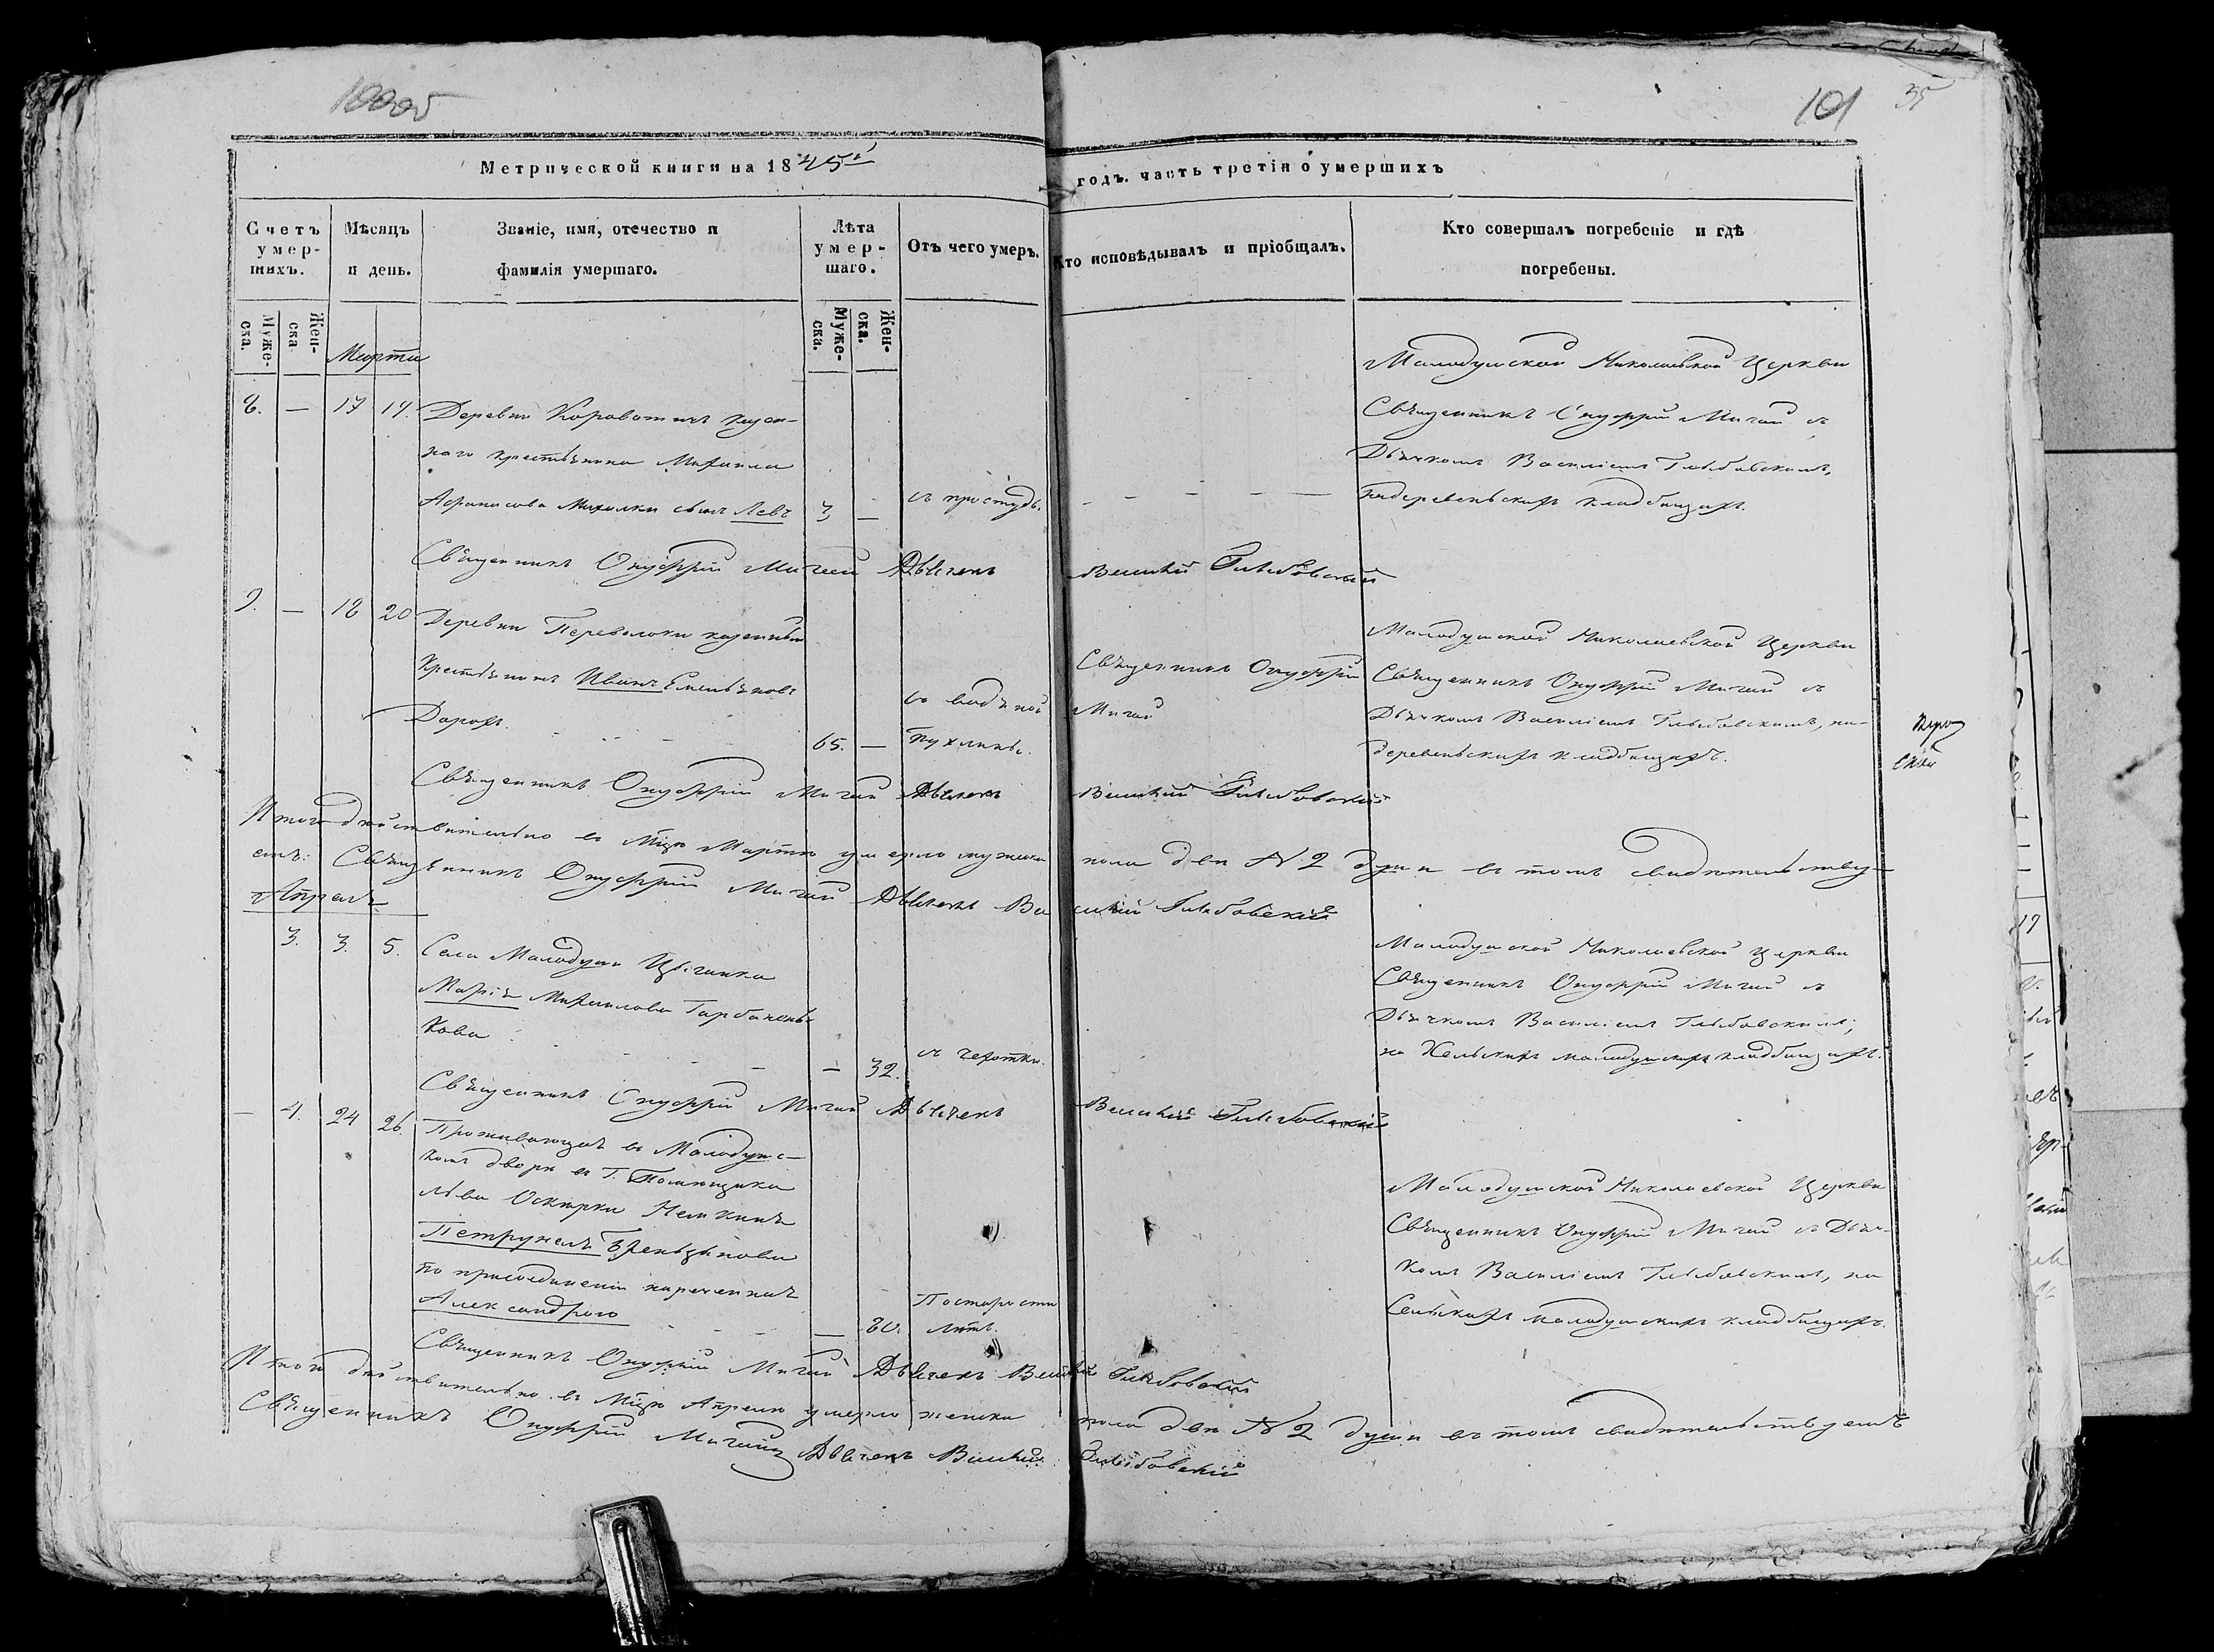 100об
101
35
Метрической книги на 1845й
годъ. часть третія о умершихъ
Счетъ умер-шихъ.
Мѣсяцъ и день.
Званіе, имя, отечество и фамилія умершаго.
Лѣта умер-шаго.
Отъ чего умеръ.
Кто исповѣдывалъ и пріобщалъ.
Кто совершалъ погребеніе и гдѣ погребены.
Муже-ска.
Жен-ска
Муже-ска.
Жен-ска.
Марта
8. — 17 19.
Деревни Короватичъ казен-
наго крестьянина Михаила
Афанасова сынъ Левъ 3 —
съ простуды.
Малодушской Николаевской Церкви
Священникъ Онуфрій Мигай съ
Дьячкомъ Василіемъ Глыбовскимъ,
надеревеньскихъ кладбищахъ.
Священникъ Онуфрій Мигай Дьячекъ Василій Глыбовскій
9. — 18 20
Деревни Переволоки казенный
Крестьянинъ Иванъ Емельяновъ
65. —
съ водяной
пухлины.
Священникъ Онуфрій
Мигай
Малодушской Николаевской Церкви
Священникъ Онуфрій Мигай съ
Дьячкомъ Василіемъ Глыбовскимъ, на-
деревеньскихъ кладбищахъ.
Священникъ Онуфрій Мигай Дьячекъ Василій Глыбовскій
Итого действительно въ Мцѣ Мартѣ умерло мужеска пола двѣ № 2 души въ томъ свидѣтельству-
емъ: Священникъ Онуфрій Мигай Дьячекъ Василій Глыбовскій
Апрель
3. 3. 5.
Села Малодуши Цыганка
Марія Михаилова Горбаченъ-
кова
— 32.
съ чехотки.
Малодушской Николаевской Церкви
Священникъ Онуфрій Мигай съ
Дьячкомъ Василіемъ Глыбовскимъ,
на Сельскихъ малодушскихъ кладбищахъ.
Священникъ Онуфрій Мигай Дьячекъ Василій Глыбовскій
— 4. 24 26.
Проживающая въ Малодушс-
комъ дворѣ въ Г. Помѣщика
Льва Оскирки Немкиня
Петрунеля
по присоединеніи нареченная
Александрою
— 80.
Постарости
лѣтъ.
Малодушской Николаевской Церкви
Священникъ Онуфрій Мигай съ Дьяч-
комъ Василіемъ Глыбовскимъ, на
Сельскихъ малодушскихъ кладбищахъ.
Священникъ Онуфрій Мигай Дьячекъ Василій Глыбовскій
Итого действительно въ Мцѣ Апрелѣ умерло женска пола двѣ № 2 души въ томъ свидѣтельствуемъ
Священникъ Онуфрій Мигай Дьячекъ Василій Глыбовскій